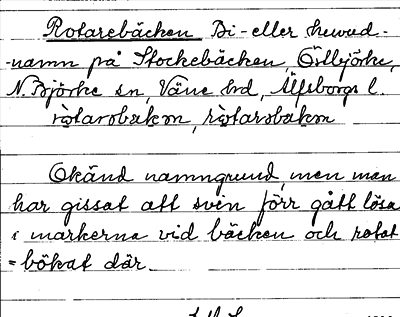 Rotarebäcken Bi- eller huvud-
-namn på Stockebäcken, Östbjörke,
N. Björke sn, Väne hd, Älfsborgs l.
Okänd namngrund, men man
har gissat att svin förr gått lösa
i markerna vid bäcken och rotat
=bökat där.